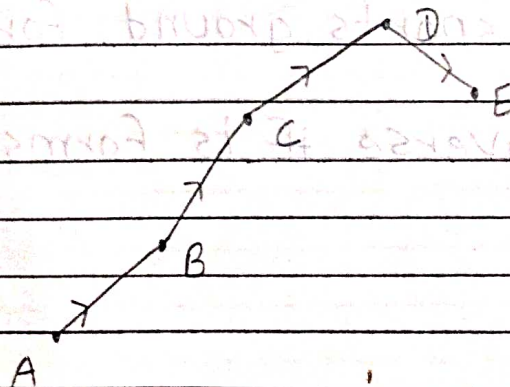 D
E
C
B
A